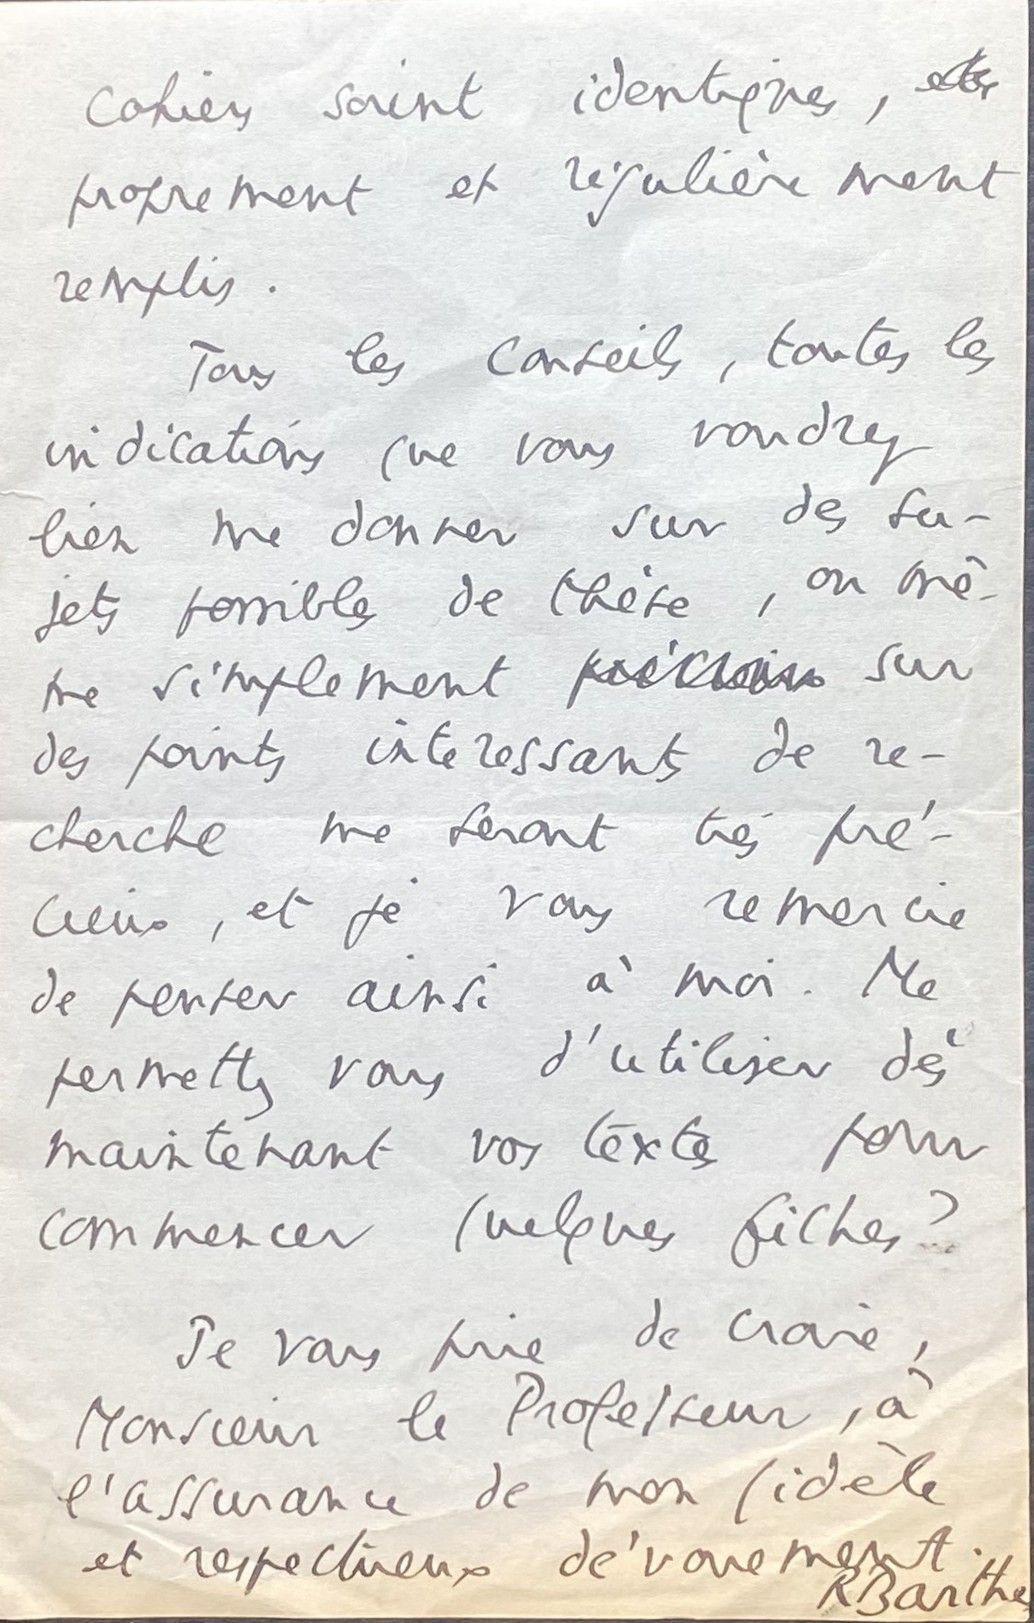 cahiers soient identiques,
proprement et régulièrement
remplis.
Tous les conseils, toutes les
indications que vous voudrez
bien me donner sur des su-
jets possibles de thèse, ou mê-
me simplement sur
des points intéressants de re-
cherche me seront très pré-
cieux, et je vous remercie
de penser ainsi à moi. Me
permettez vous d'utiliser dès
maintenant vos textes pour
commencer quelques fiches?
Je vous prie de croire,
Monsieur le Professeur, à
l'assurance de mon fidèle
et respectueux dévouement.
RBarthes